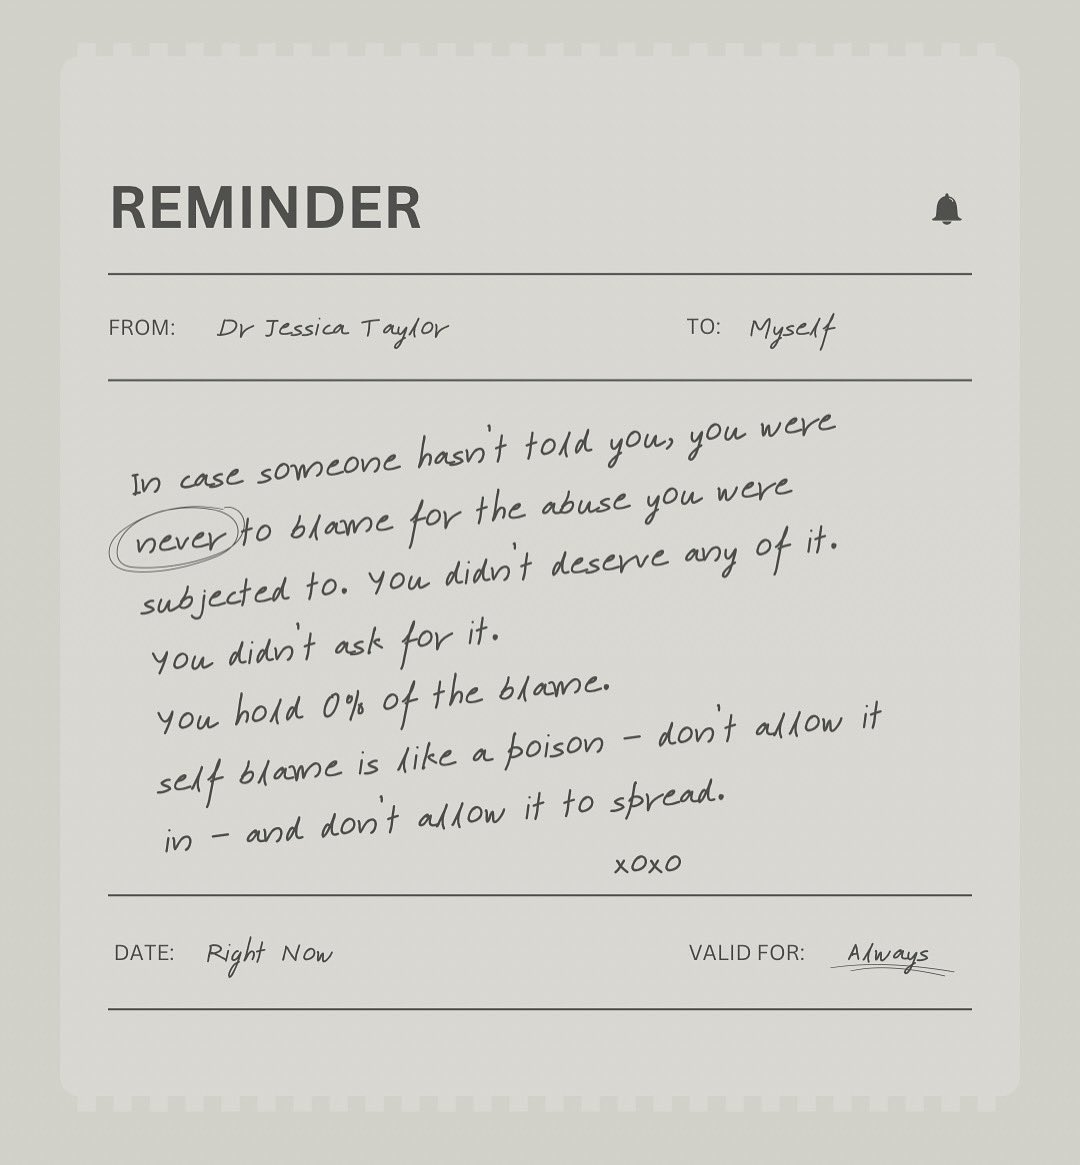 REMINDER
FROM: Dr Jessica Taylor TO: Myself
In case someone hasn't told you, you were
never to blame for the abuse you were
subjected to. You didn't deserve any of it.
You didn't ask for it.
You hold 0% of the blame.
self blame is like a poison – don't allow it
in – and don't allow it to spread.
xoxo
DATE: Right Now VALID FOR: Always